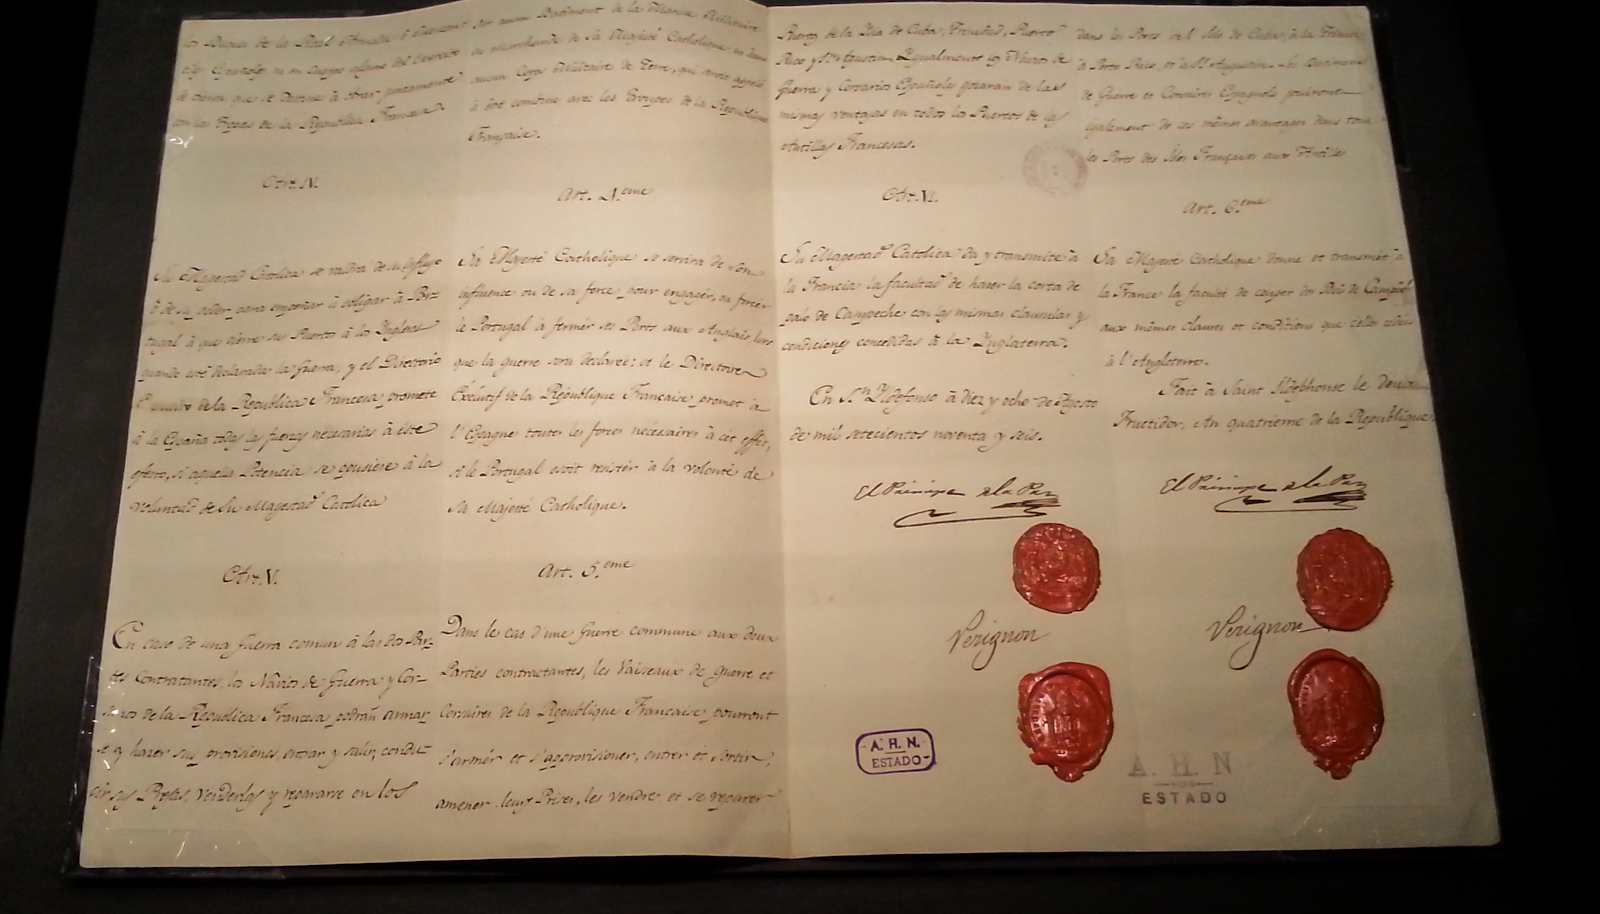 los Buques de la Real Armada ô Mercant
cios Españoles ni en cuerpo alguno del Exercito
de tierra que se destine à obrar juntamente
con las Tropas de la Republica Francesa.
Art. IV.
Su Magestad Catolica se valdrà de su influjo
ô de su poder para empeñar ô obligar à Por-
tugal à que cierre sus Puertos à los Yngleses
quando esté declarada la Guerra, y el Directorio
Executivo de la Republica Francesa promete
à la España todas las fuerzas necesarias à este
efecto, si aquella Potencia se opusiese à la
voluntad de Su Magestad Catolica
Art. V.
En caso de una Guerra comun à las dos Par-
tes Contratantes, los Navios de Guerra y Cor-
sarios de la Republica Francesa podràn armar
se y hazer sus provisiones, entrar y salir, condu-
cir sus Presas, venderlas y repararse en los
sur aucun Batiment de la Marine Militaire
ou Marchande de Sa Majesté Catholique, ni dans
aucun Corps Militaire de Terre, qui seroit appellé
à être combiné avec les Troupes de la République
Française.
Art. 4.eme
Sa Majesté Catholique se servira de son
influence ou de sa force pour engager, ou forcer
le Portugal à fermér ses Ports aux Anglais, lors
que la guerre sera declarée: et le Directoire
Exécutif de la République Française promet à
l'Espagne toutes les forces nécessaires à cet effet,
si le Portugal osoit resistér à la volonté de
Sa Majesté Catholique.
Art. 5.eme
Dans le cas d'une Guerre commune aux deux
Parties contractantes, les Vaisseaux de guerre et
Corsaires de la Republique Française pourront
s'armér et s'approvisioner, entrer et sortir,
amener leurs Prises, les vendre et se reparer
Puertos de la Ysla de Cuba, Trinidad, Puerto
Rico y S.n Agustin. Ygualmente los Navios de
Guerra y Corsarios Españoles gozaràn de las
mismas ventajas en todos los Puertos de las
Antillas Francesas.
Art. VI.
Su Magestad Catolica da y transmite à
la Francia la facultad de hazer la corta de
palo de Campeche con las mismas clausulas y
condiciones concedidas à la Ynglaterra.
En S.n Yldefonso à diez y ocho de Agosto
de mil setecientos noventa y seis.
El Principe de la Paz
Verignon
A. H. N.
ESTADO
dans les Ports de l'Isle de Cuba, de la Trinité,
à Porto Rico, et à S.t Augustin. Les Batimens
de Guerre et Corsaires Espagnols jouiront
également de ces mêmes avantages dans tous
les Ports des Isles Françaises aux Antilles
Art. 6.eme
Sa Majesté Catholique donne et transmét à
la France la faculté de couper du Bois de Campêche
aux mêmes clauses et conditions que celles cedées
à l'Angleterre.
Fait à Saint Ildephonse le deux
Fructidor, An quatrieme de la Republique
El Principe de la Paz
Verignon
A. H. N
ESTADO